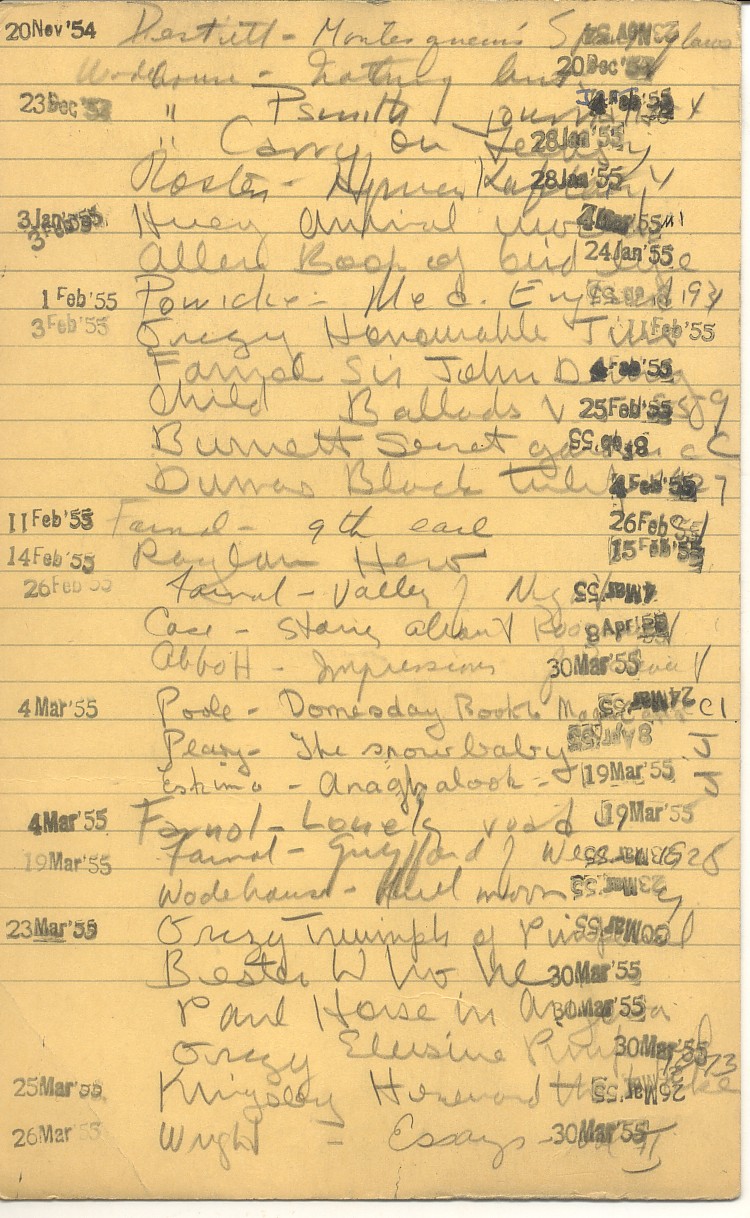 20 Nov '54 Destutt - Montesquieu's laws
Wodehouse - Nothing but 20 Dec '54
23 Dec " Psmith journalist 4 Feb '55
" Carry on Jeeves 28 Jan '55
Rosten - Hyman Kaplan 28 Jan '55
3 Jan '55 Huey animal 4 Mar '55
3 Feb '55
Allen Book of bird life 24 Jan '55
1 Feb '55 Powicke - Med. England
3 Feb '55 Orczy Honourable Jim 11 Feb '55
Farnol Sir John Dering 4 Feb '55
Child Ballads V 25 Feb '55
Burnett Secret garden 8 Feb '55
Dumas Black tulip 4 Feb '55
11 Feb '55 Farnol - 9th earl 26 Feb
14 Feb '55 Raglan Hero 15 Feb '55
26 Feb '55 Farnol - Valley of Night 4 Mar '55
Case - Stories about 8 Apr '55
Abbott - Impressions 30 Mar '55
4 Mar '55 Poole - Domesday Book 24 Mar '55
Peary - The snowbaby 8 Apr '55 J
Eskimo - Anaghalook - 19 Mar '55 J
4 Mar '55 Farnol - Lonely road 19 Mar '55
19 Mar '55 Farnol - Guyfford of Weare
Wodehouse - Full moon 23 Mar '55
23 Mar '55 Orczy Triumph of Pimpernel 30 Mar '55
Bester Who he 30 Mar '55
Paul Horse in 30 Mar '55
Orczy Elusive Pimpernel 30 Mar '55
25 Mar '55 Kingsley Hereward the Wake 26 Mar '55
26 Mar '55 Wright - Essays - 30 Mar '55